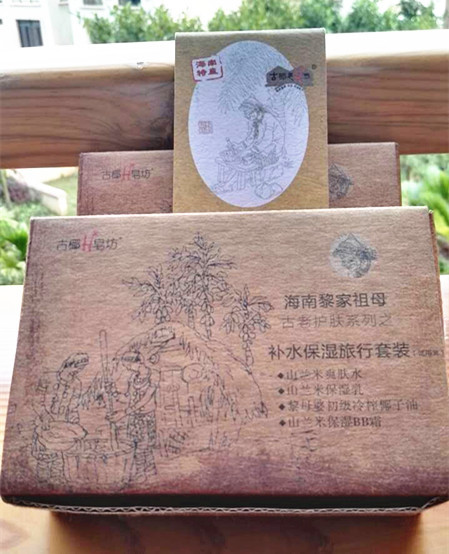 海南
特產
古椰H皂坊
古椰H皂坊
海南黎家祖母
古老护肤系列之
补水保湿旅行套装
◆山兰米爽肤水
◆山兰米保湿乳
◆黎母婆初级冷榨椰子油
◆山兰米保湿BB霜